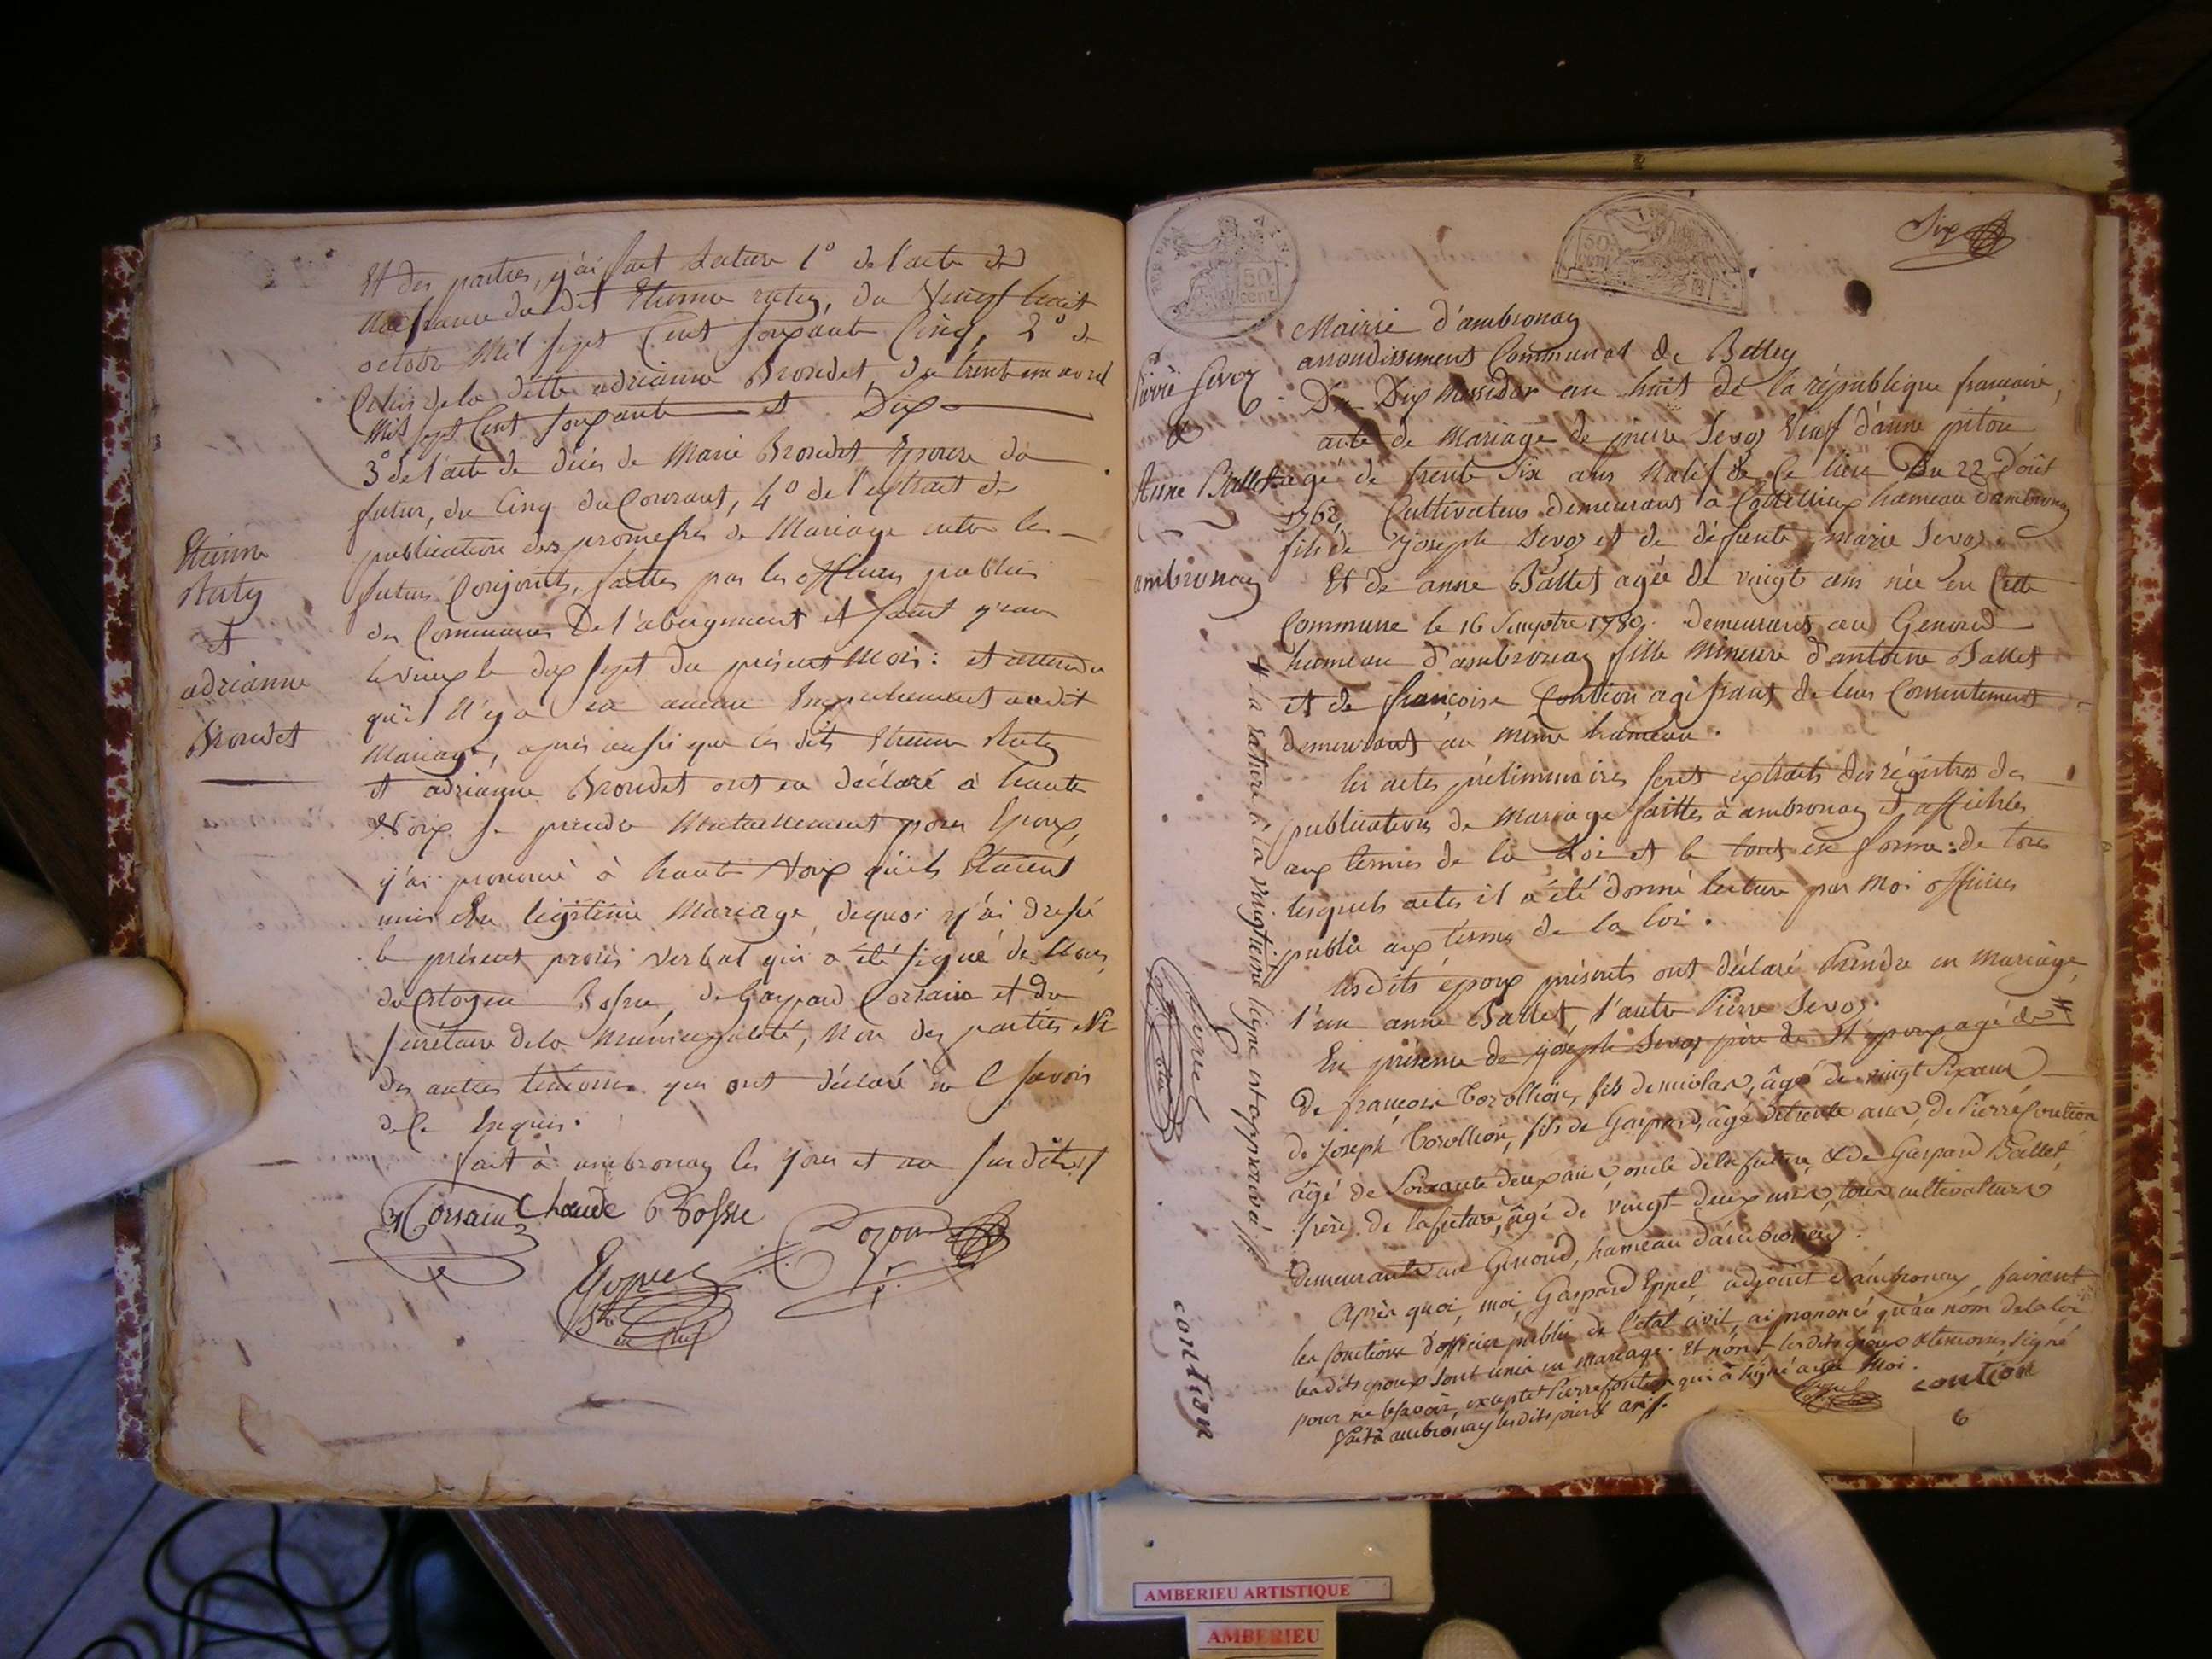 Et des parties, j'ai fait Lecture 1° de l'acte de
Naissance du dit Etienne raty, du Vingt huit
octobre Mil Sept Cent Soixante Cinq, 2° de
Celui de la ditte adrianne Brondet du trente un avril
Mil Sept Cent Soixante et Dix
3° de l'acte de décès de Marie Brondet Epouse du
futur, du Cinq du Courant, 4° de l'extrait de
publication des promesses de Mariage entre les
futurs Conjoints, faittes par les officiers publics
des Communes De l'abergement et Saint jean
le Vieux le dix Sept du présent Mois : et attendu
qu'il N'y a eu aucun Empechement audit
Mariage, après aussi que les dits Etienne Raty
et adrianne Brondet ont eu déclaré à haute
Voix se prendre Mutuellement pour Epoux,
j'ai prononcé à haute Voix qu'ils Etaient
unis En légitime Mariage, dequoi j'ai dressé
le présent procès verbal qui a été signé de Nous,
du Citoyen Bossu, de Gaspard Corsain et du
secrétaire de la Municipalité, Non des parties Ni
des autres temoins qui ont déclaré ne l Savoir
de Ce Enquis.
fait à ambronay les jour et an susdits
Etienne
Raty
et
adrianne
Brondet
Corsain Chaude Bossu Dozon
en chef
Six
50 cent
50 cent
Mairie d'ambronay
arrondissement Communal de Belley
Du Dix Messidor an huit de la république francaise,
acte de Mariage de pierre Sevoz Veuf d'anne piton
agé de trente Six ans Natif de Ce lieu Du 22 D'oût
1763, Cultivateur demeurant à Cottelieux hameau d'ambronay
fils de Joseph Sevoz et de défunte marie Sevoz.
Et de anne Ballet agée de vingt ans née en Cette
Commune le 16 Semptre 1780. demeurant au Genoud
hameau d'ambronay fille Mineure d'antoine Ballet
et de françoise Coution agissant de leur Consentement
demeurant au même hameau.
les actes préliminaires sont extraits des régistres de
publications de Mariage faittes à ambronay et affichées
aux termes de la Loi et le tout en forme : de tous
lesquels actes il a été donné lecture par Moi officier
public aux termes de la loi.
lesdits époux présents ont déclaré Prendre en Mariage
l'un anne Ballet l'autre Pierre Sevoz.
En présence de joseph Sevoz père de l'époux agé de
De françois Corollion, fils de nicolas, âgé de vingt Six ans
de Joseph Corollion, fils de Gaspard, âgé de trente ans, de Pierre Coution
âgé de Soixante deux ans, oncle de la future, & de Gaspard Ballet,
frère de la future, âgé de vingt deux ans, tous cultivateurs
demeurants au Genoud, hameau d'ambronay.
Après quoi, moi, Gaspard Eppel adjoint d'ambronay, faisant
les fonctions d'officier public de l'état civil, ai prononcé qu'au nom de la loi
lesdits époux sont unis en mariage. Et n'ont lesdits époux & temoins signé
pour ne le savoir, excepté Pierre Coution qui a signé avec moi.
Fait à ambronay lesdits jour & an.
coution
6
Pierre Sevoz
&
Anne Ballet
ambronay
# la rature à la vingtieme ligne est approuvée
coution
AMBERIEU ARTISTIQUE
AMBERIEU